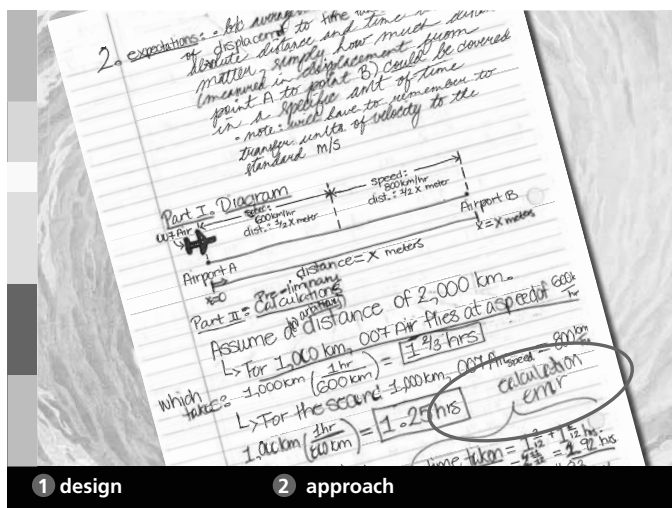 2. expectations: • 
of displacement to time
absolute distance and time
matter, simply how much
(measured in displacement from
point A to point B) could be covered
in a specific amt of time
• note: will have to remember to
transfer units of velocity to the
standard m/s
Part I. Diagram
speed:
800km/hr
dist.: 1/2 X meter
600km/hr
dist.: 1/2 X meter
007 Air
Airport B
x = X meters
Airport A
x=0
distance = X meters
Part II: Pre-liminary
Calculations
Assume a distance of 2,000 km.
↳ For 1,000 km, 007 Air flies at a speed of 600k
hr
which
takes: 1,000km (1hr/600km) = 1 2/3 hrs
↳ For the second 1,000km, 007 Air speed = 800km
calculation
error
(1hr/ km) = 1.25 hrs
time taken =
1 design
2 approach